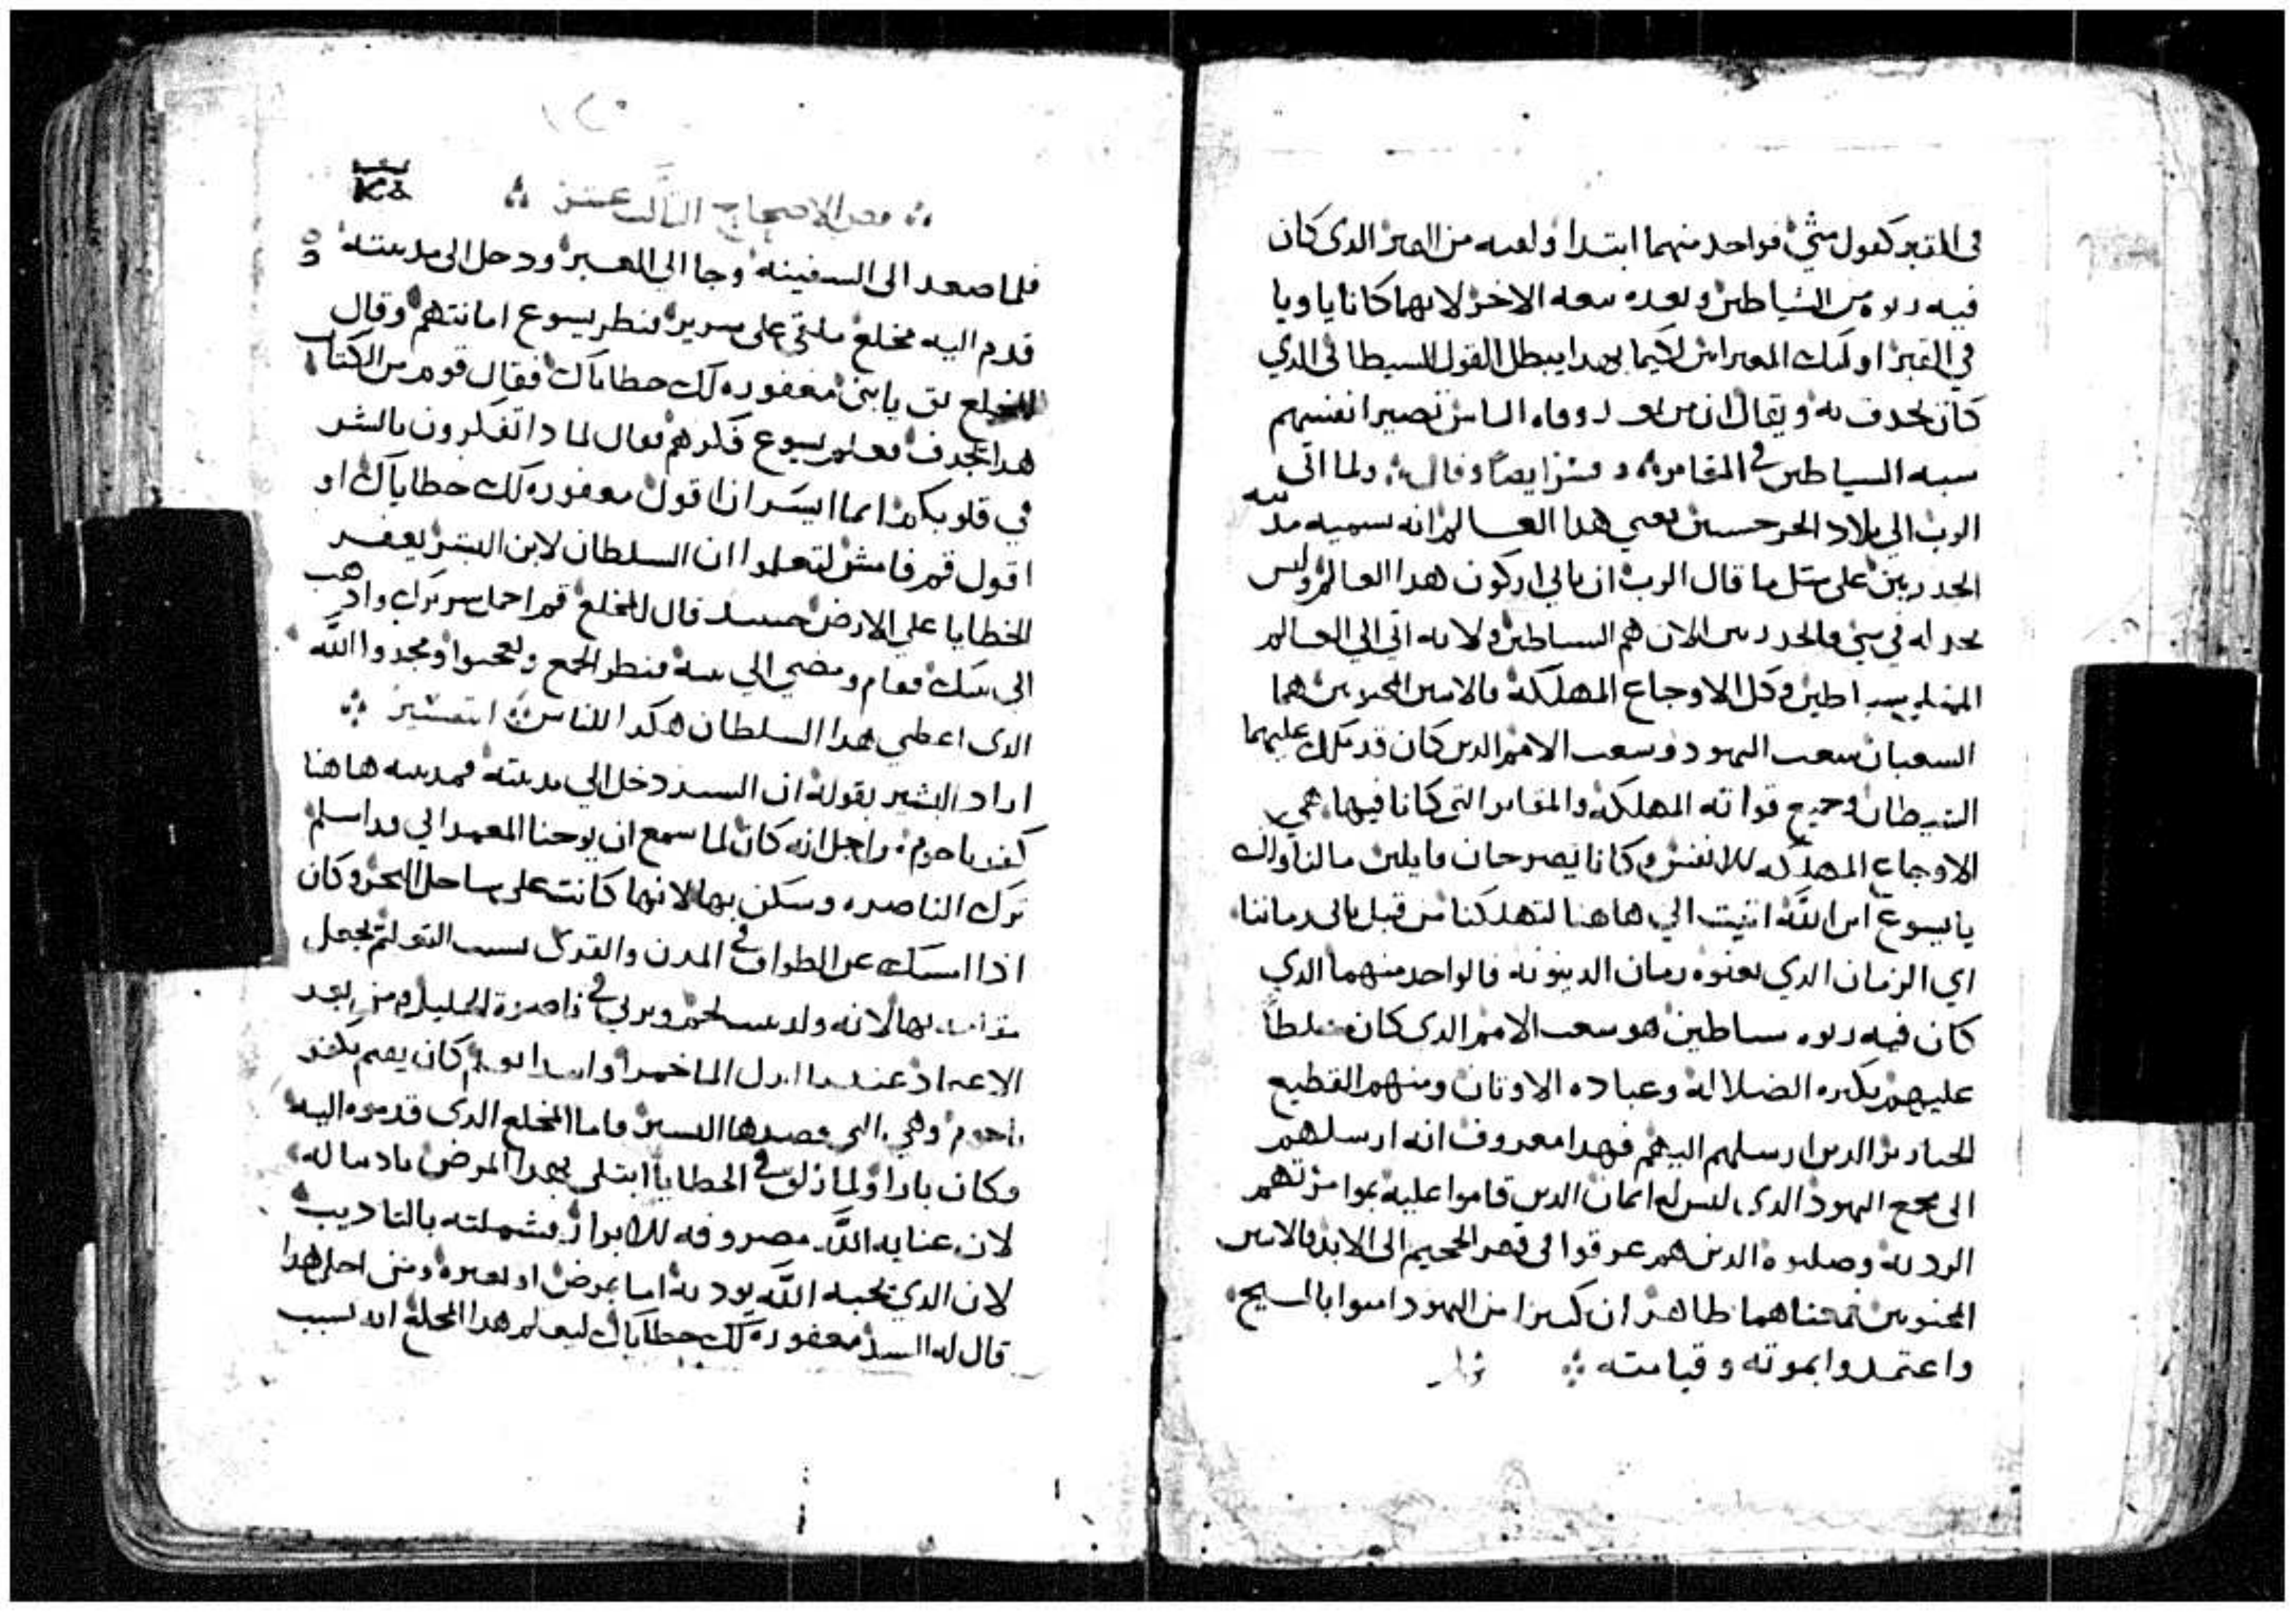 في المقبر كقول متي فواحد منهما ابتدا ولقيه من القبر الدي كان
فيه ربوه من الشياطين وبعده تبعه الاخر لانهما كانا ياويا
في القبر اوليك لكيما بهدا يبطل القول الشيطاني الدي
كان يجدف به ويقال ان من بعد وفاه الناس تصير انفسهم
شبه الشياطين في المقابر وفسر ايضا وقال ولما اتي
الرب الي بلاد الجرجسين يعني هدا العالم انه يسميه
علي متل ما قال الرب ان ياتي اركون هدا العالم وليس
يجد له في شي الان هم الشياطين ولانه اتي الي العالم
شياطين وكل الاوجاع المهلكه فالاتنين المجنونين هما
الشعبان شعب اليهود وشعب الامم الدين كان قد ملك عليهما
الشيطان وجميع قواته المهلكه والمقابر التي كانا فيها هي
الاوجاع المهلكه للانفس وكانا يصرخان قايلين ما لنا ولك
يا يسوع ابن الله اتيت الي هاهنا لتهلكنا من قبل ان ياتي زماننا
اي الزمان الدي يعنوه زمان الدينونه فالواحد منهما الدي
كان فيه ربوه شياطين هو شعب الامم الدي كان
عليهم بكتره الضلاله وعباده الاوتان ومنهم القطيع
الخنازير الدين ارسلهم اليهم فهدا معروف انه ارسلهم
الي مجمع اليهود الدي ليس له ايمان الدين قاموا عليه بموامرتهم
الرديه وصلبوه الدين هم غرقوا في قعر الجحيم الي الابد فالاتنين
المجنونين فمعناهما ظاهر ان كتيرا من اليهود امنوا بالمسيح
واعتمدوا بموته وقيامته
فص الاصحاح التالت عشر
فلما صعد الي السفينه وجا الي العبر ودخل الي مدينته
قدم اليه مخلع ملقي علي سرير فنظر يسوع امانتهم وقال
للمخلع تق يا بني مغفوره لك خطاياك فقال قوم من الكتاب
هدا يجدف فعلم يسوع فكرهم فقال لمادا تفكرون بالشر
في قلوبكم ايما ايسر ان اقول مغفوره لك خطاياك او
اقول قم فامش لتعلموا ان السلطان لابن البشر يغفر
الخطايا علي الارض حينيد قال للمخلع قم احمل سريرك وادهب
الي بيتك فقام ومضي الي بيته فنظر الجمع وتعجبوا ومجدوا الله
الدي اعطي هدا السلطان هكدا للناس التفسير
اراد البشير بقوله ان السيد دخل الي مدينته فمدينته هاهنا
كفرناحوم من اجل انه كان لما سمع ان يوحنا المعمداني قد اسلم
ترك الناصره وسكن بها لانها كانت علي ساحل البحر وكان
ادا امسك عن الطواف في المدن والقري بسبب التعليم يجعل
بها لانه ولد ببيت لحم وربي في ناصرة الجليل ومن بعد
الاعماد عندما ابدل الما خمرا كان يقيم بكفر
ناحوم وهي التي قصدها البشير فاما المخلع الدي قدموه اليه
فكان بارا ولما زلق في الخطايا ابتلي بهدا المرض تاديبا له
لان عنايه الله مصروفه للابرار فشملته بالتاديب
لان الدي يحبه الله يودبه اما بمرض او بغيره ومن اجل هدا
قال له السيد مغفوره لك خطاياك ليعلم هدا المخلع ان بسبب